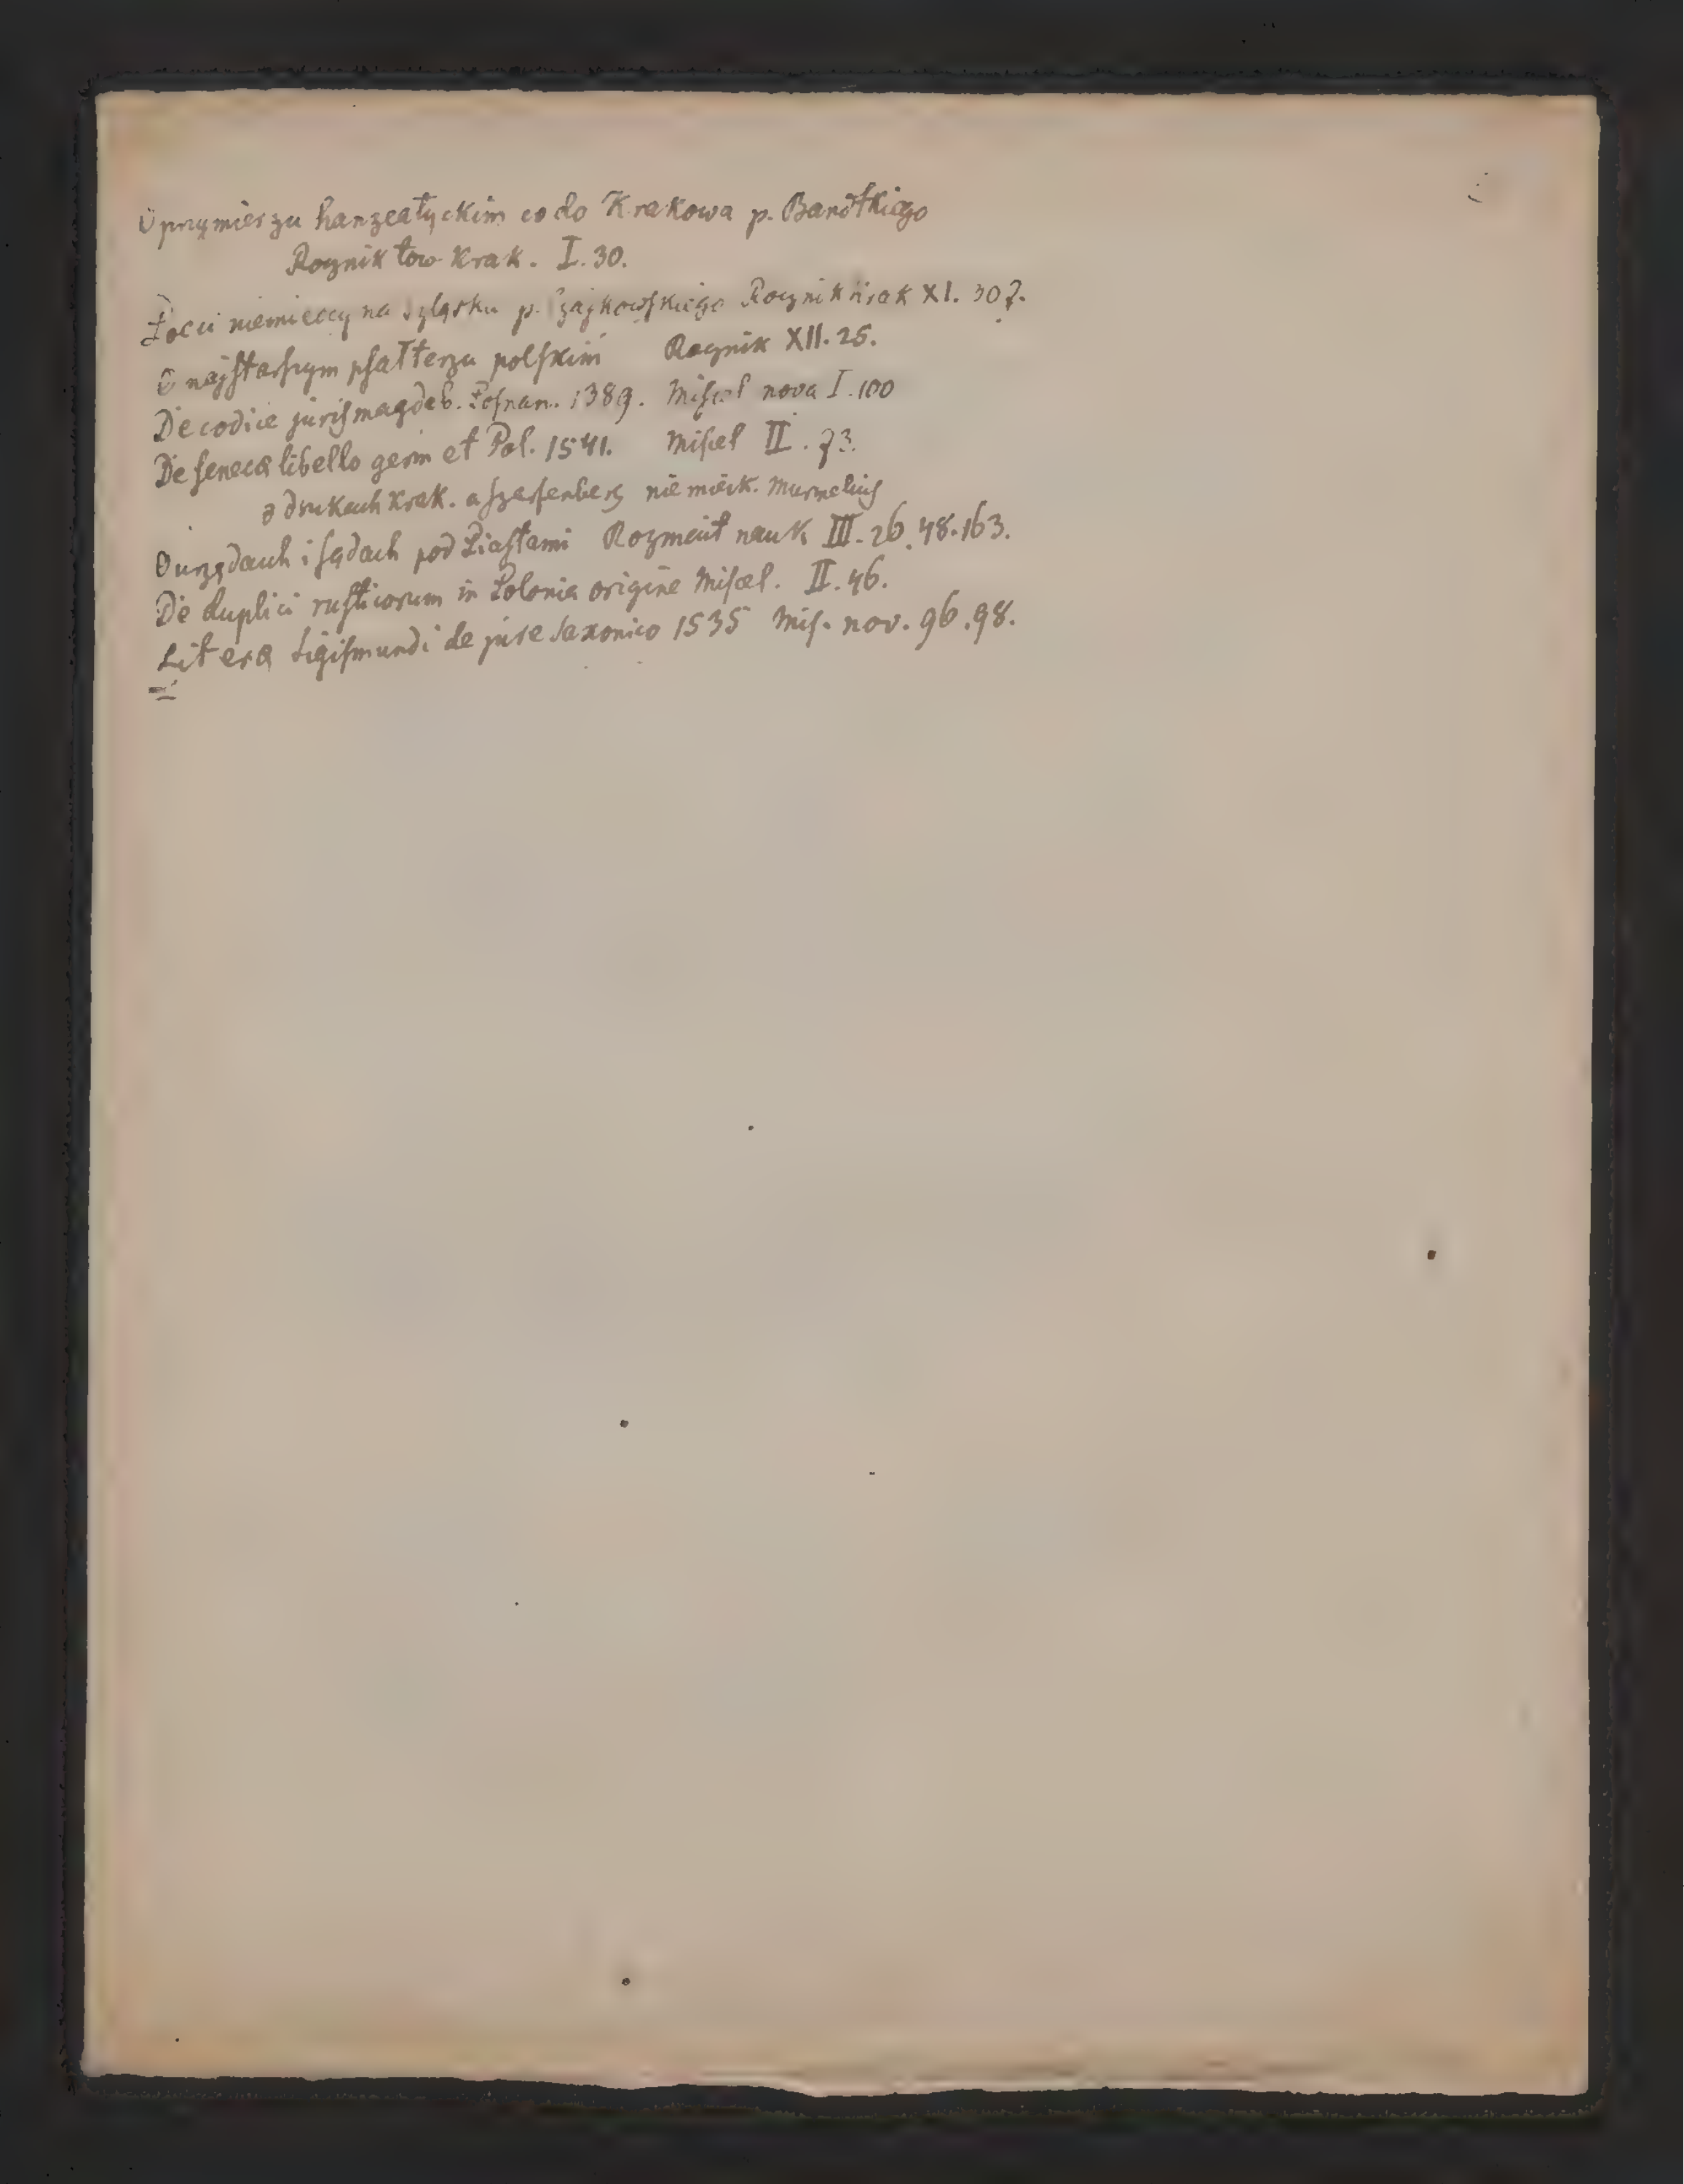 O przymierzu hanzeatyckim co do Krakowa p. Bandtkiego
Rocznik tow Krak. I. 30.
Poeci niemieccy na Szląsku p. Czajkowſkiego Rocznik Krak XI. 307.
O najſtarſzym pſałterzu polſkim Rocznik XII. 25.
De codice juriſ magdeb. Poſnan. 1389. Miſcel nova I. 100
De ſenecæ libello germ et Pol. 1541. Miſcel II. 73.
z drukach Krak. a Szarfenberg niemieck. Murmeliuſ
O urzędach i ſądach pod Piaſtami Rozmait nauk III. 26. 48. 163.
De duplici ruſticorum in Polonia origine Miſcel. II. 46.
Litera Sigiſmundi de jure Saxonico 1535 Miſ. nov. 96. 98.